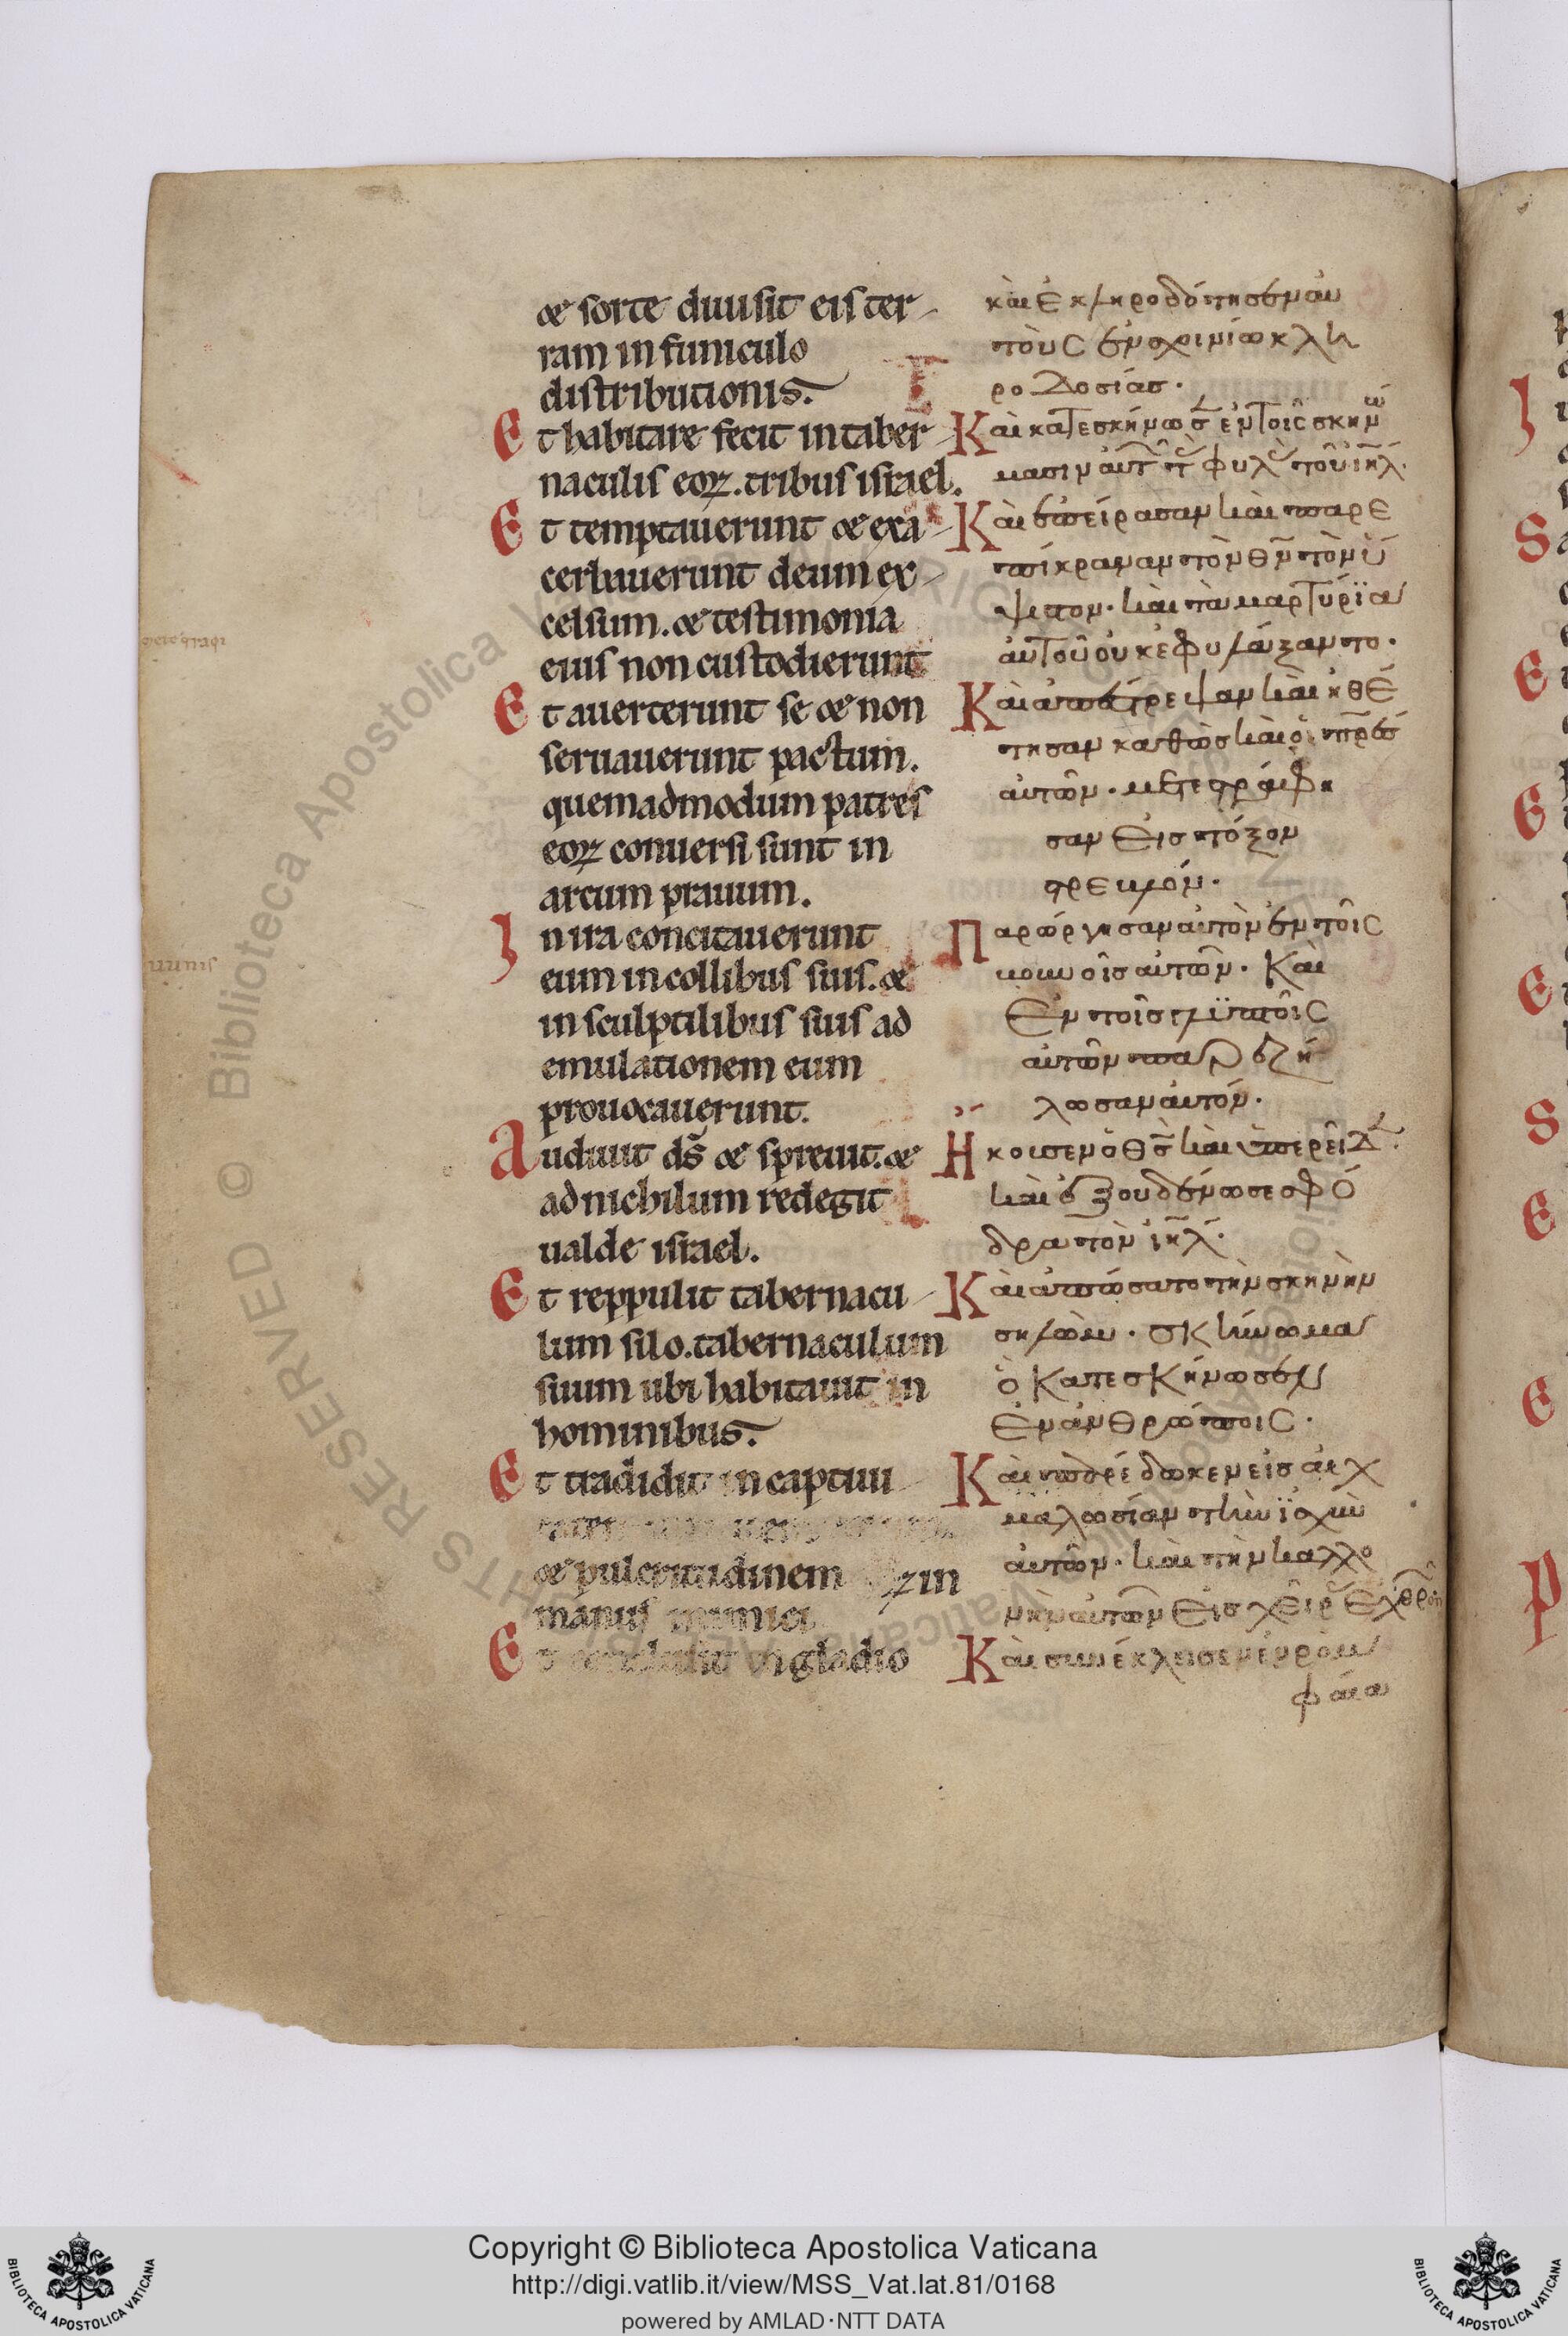 & sorte diuisit eis ter-
ram in funiculo
distributionis.
Et habitare fecit in taber-
naculis eoꝝ. tribus israel.
Et temptauerunt & exa-
cerbauerunt deum ex-
celsum. & testimonia
eius non custodierunt
Et auerterunt se & non
seruauerunt pactum.
quemadmodum patres
eoꝝ conuersi sunt in
arcum prauum.
In ira concitauerunt
eum in collibus suis. &
in sculptilibus suis ad
emulationem eum
prouocauerunt.
Audiuit ds̄ & spreuit. &
ad nichilum redegit
ualde israel.
Et reppulit tabernacu-
lum silo. tabernaculum
suum ubi habitauit in
hominibus.
Et tradidit in captiui
& pulcritudinem in
manus inimici
Et in gladio
καὶ ἐκληροδότησεν αυ
τοὺς ἐν σχοινίω κλη
ροδοσίας.
Καὶ κατεσκήνωσ ἐν τοῖς σκηνώ
μασιν αὐτ τ φυλ τοῦ ιηλ.
Καὶ ἐπείρασαν καὶ παρε
πίκραναν τὸν θν τὸν ὕ
ψιστον. καὶ τὰ μαρτύρϊα
ἀυτοῦ οὐκ ἐφυλάξαντο.
Καὶ ἀπέστρεψαν καὶ ηθέ
τησαν καθὼς καὶ οἱ πρες
ἀυτῶν. μετεστράφη
σαν εις τόξον
στρεβλόν.
Παρώργησαν αυτὸν ἐν τοῖς
βουνοῖς αυτῶν. Καὶ
Ἐν τοῖς γλϋπτοῖς
αυτῶν παρεζή
λωσαν αυτόν.
Ἤκουσεν ὁ θς καὶ ὑπερεῖδ.
καὶ ἐξουδένωσε σφό
δρα τὸν ιηλ.
Καὶ ἀπώσατο τὴν σκηνὴν
σηλώμ. σκήνωμα
ὃ κατεσκήνωσεν
Ἐν ἀνθρώποις.
Καὶ παρέδωκεν εἰς αἰχ
μαλωσίαν τὴν ϊσχὺν
ἀυτῶν. καὶ τὴν καλλο
νὴν αυτῶν εἰς χεῖρ ἐχθρῶν
Καὶ συνέκλεισεν ἐν ρομ
φαία
Copyright © Biblioteca Apostolica Vaticana
http://digi.vatlib.it/view/MSS_Vat.lat.81/0168
powered by AMLAD·NTT DATA